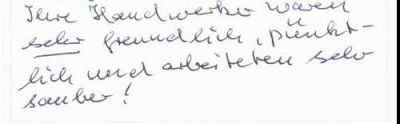 Ihre Handwerker waren
sehr freundlich, pünkt-
lich und arbeiteten sehr
sauber!